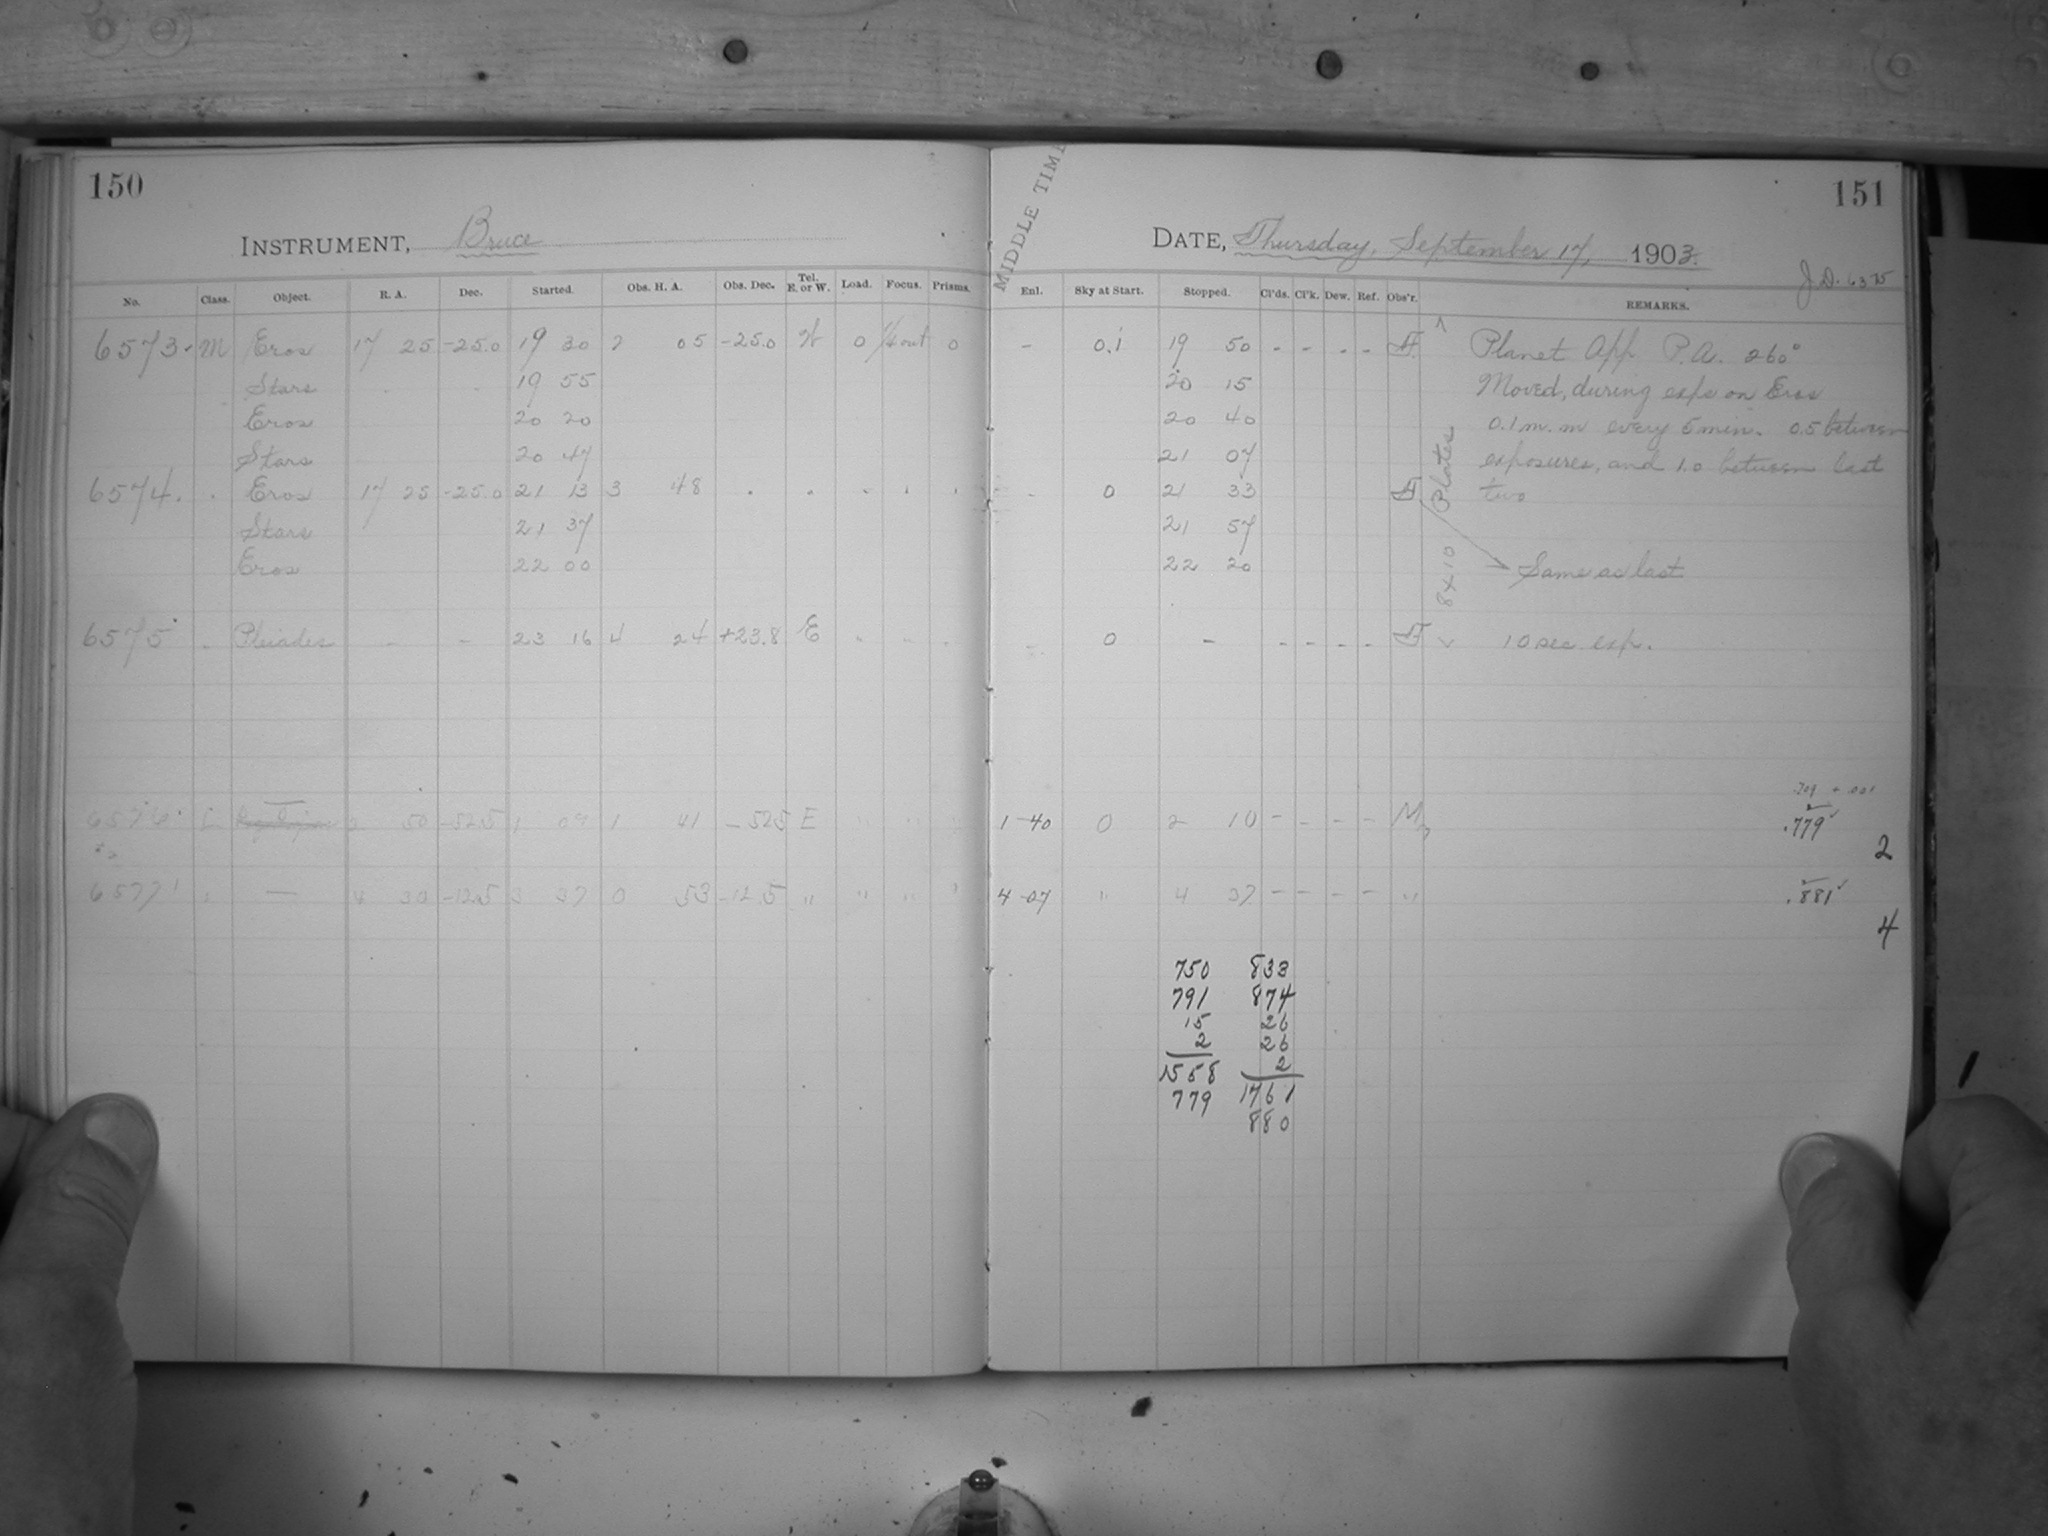 150
INSTRUMENT, Bruce
No. Class. Object. R. A. Dec. Started. Obs. H. A. Obs. Dec. Tel. E. or W. Load. Focus. Prisms.
MIDDLE TIME
DATE, Thursday, September 17, 1903.
151
J. D. 6375
Enl. Sky at Start. Stopped. Cl'ds. Cl'k. Dew. Ref. Obs'r. REMARKS.
6573. M Eros 17 25 -25.0 19 30 2 05 -25.0 W 0 1/4 out 0 - 0.1 19 50 - - - - Planet App P.A. 260°
Stars 19 55 20 15 Moved, during exps on Eros
Eros 20 20 20 40 0.1 m.m every 5 min. 0.5 between
Stars 20 47 21 07 exposures, and 1.0 between last
6574. Eros 17 25 -25.0 21 13 3 48 - 0 21 33 two
Stars 21 37 21 57
Eros 22 00 22 20 Same as last
8x10 Plates
6575 Pleiades - - 23 16 4 24 +23.8 E " " - 0 - - - - - 10 sec exp.
.779
6576 L 50 -52.5 1 09 1 41 -52.5 E " " " 1-40 0 2 10 - - - - M
2
6577 — 4 30 -12.5 3 37 0 53 -12.5 " " " " 4-07 " 4 37 - - - - " .881
4
750 833
791 874
15 26
2 26
1558 2
779 1761
880